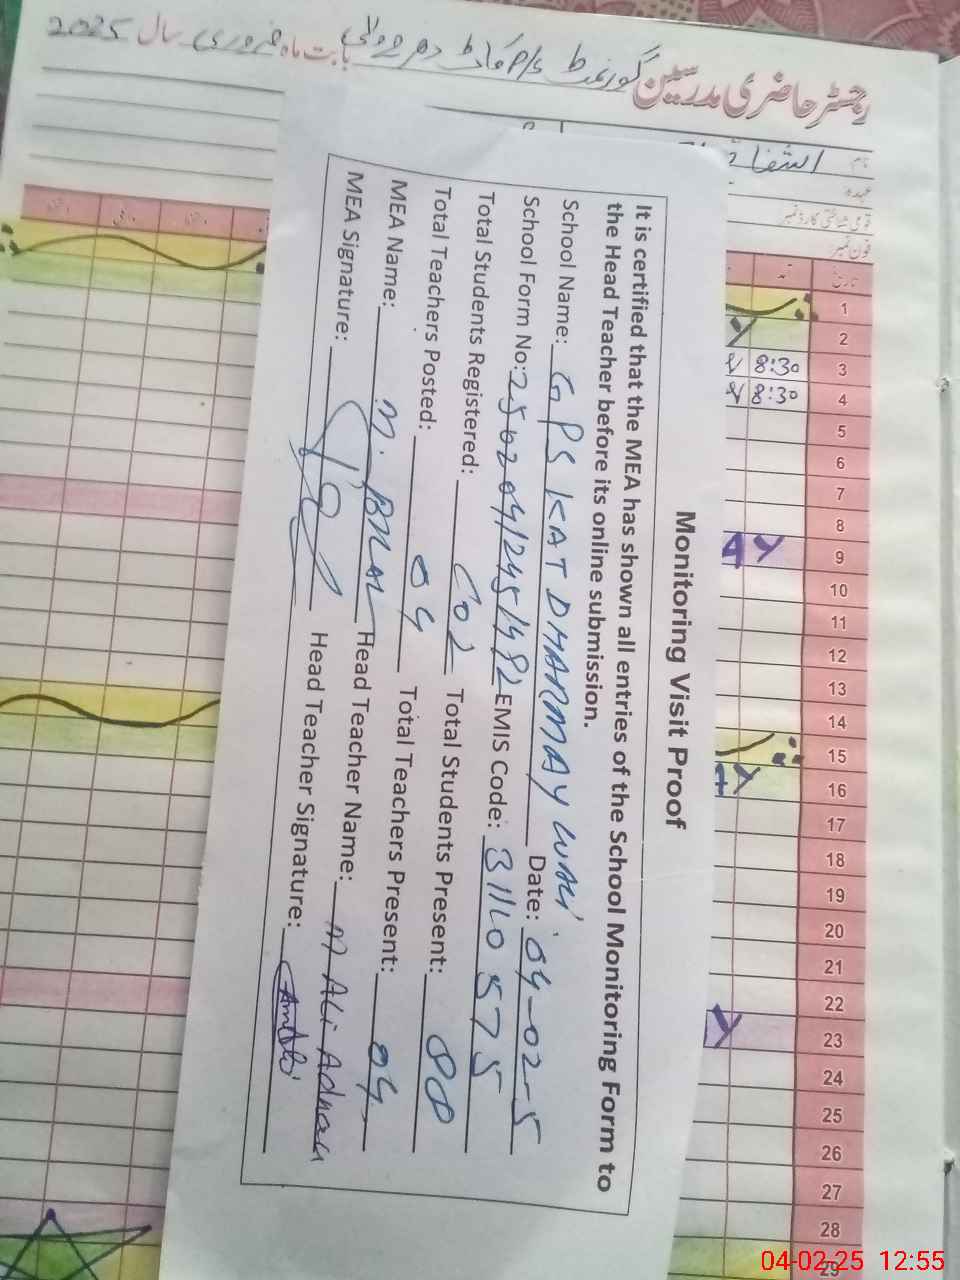 رجسٹر حاضری مدرسین گورنمنٹ P/S بابت ماہ فروری سال 2025
نام
عہدہ
قومی شناختی کارڈ نمبر
فون نمبر
تاریخ
1
2
3 8:30
4 8:30
5
6
7
8
9
10
11
12
13
14
15
16
17
18
19
20
21
22
23
24
25
26
27
28
29
Monitoring Visit Proof
It is certified that the MEA has shown all entries of the School Monitoring Form to
the Head Teacher before its online submission.
School Name: GPS KAT DHARMAY WALI Date: 04-02-5
School Form No: 250204/245/492 EMIS Code: 31160575
Total Students Registered: 102 Total Students Present: 80
Total Teachers Posted: 04 Total Teachers Present: 04
MEA Name: M. BILAL Head Teacher Name: M Ali Adnan
MEA Signature: Head Teacher Signature:
04-02-25 12:55